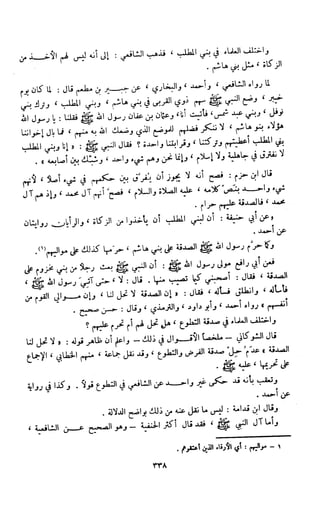 واختلف العلماء في بني المطلب ، فذهب الشافعي : إلى أنه ليس لهم الأخـــذ من
الزكاة ، مثل بني هاشم .
لما رواه الشافعي ، وأحمد ، والبخاري ، عن جبـــير بن مطعم قال : لما كان يوم
خيبر ، وضع النبي ﷺ سهم ذوي القربى في بني هاشم ، وبني المطلب ، وترك بني
نوفل ، وبني عبد شمس ، فأتيت أنا وعثمان بن عفان رسول الله ﷺ فقلنا : يا رسول الله
هؤلاء بنو هاشم ، لا ننكر فضلهم للموضع الذي وضعك الله به منهم ، فما بال إخواننا
بني المطلب أعطيتهم وتركتنا ، وقرابتنا واحدة ؟ فقال النبي ﷺ : « إنا وبني المطلب
لا نفترق في جاهلية ولا إسلام ، وإنما نحن وهم شيء واحد ، وشبك بين أصابعه » .
قال ابن حزم : فصح أنه لا يجوز أن يفرق بين حكمهم في شيء أصلا ، لأنهم
شيء واحـــد بنص كلامه ، عليه الصلاة والسلام ، فصح أنهم آل محمد ، وإذ هم آل
محمد ، فالصدقة عليهم حرام .
وعن أبي حنيفة : أن لبني المطلب أن يأخذوا من الزكاة ، والرأيان روايتان
عن أحمد .
وكما حرم رسول الله ﷺ الصدقة على بني هاشم ، حرمها كذلك على مواليهم (١) .
فعن أبي رافع مولى رسول الله ﷺ : أن النبي ﷺ بعث رجلا من بني مخزوم على
الصدقة ، فقال : أصحبني كيما تصيب منها . قال : لا ، حتى آتي رسول الله ﷺ ،
فأسأله ، وانطلق فسأله ، فقال : « إن الصدقة لا تحل لنا ، وإن مـــوالي القوم من
أنفسهم » رواه أحمد ، وأبو داود ، والترمذي ، وقال : حسن صحيح .
واختلف العلماء في صدقة التطوع ، هل تحل لهم أم تحرم عليهم ؟
قال الشوكاني – ملخصاً الأقـــوال في ذلك – واعلم أن ظاهر قوله : « لا تحل لنا
الصدقة » عدم حل صدقة الفرض والتطوع ، وقد نقل جماعة ، منهم الخطابي ، الإجماع
على تحريمها ، عليه ﷺ .
وتعقب بأنه قد حكى غير واحـــد عن الشافعي في التطوع قولاً . وكذا في رواية
عن أحمد .
وقال ابن قدامة : ليس ما نقل عنه من ذلك بواضح الدلالة .
وأما آل النبي ﷺ ، فقد قال أكثر الحنفية – وهو الصحيح عـــن الشافعية ،
١ – مواليهم : أي الأرقاء الذين أعتقوهم .
٣٣٨